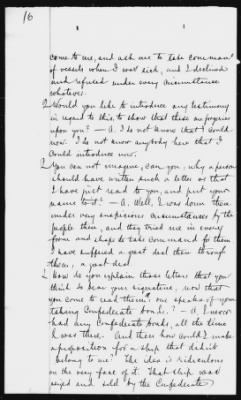 16
come to me, and ask me to take command
of vessels when I was sick, and I declined
and refused under every circumstance
whatever.
Q Would you like to introduce any testimony
in regard to this, to show that these are forgeries
upon you? — A. I do not know that I could
now. I do not know anybody here that I
could introduce now.
Q You can not imagine, can you, why a person
should have written such a letter as that
I have just read to you, and put your
name to it? — A. Well, I was down there
under very suspicious circumstances by the
people there, and they tried me in every
form and shape to take command for them
I have suffered a great deal there through
them, a great deal
Q How do you explain those letters that you
think do bear your signature, now that
you come to read them: one speaks of your
taking Confederate bonds.? — A. I never
had any Confederate bonds, all the time
I was there. And then how could I make
a proposition for a ship that didn't
belong to me? The idea is ridiculous
on the very face of it. That ship was
seized and sold by the Confederate